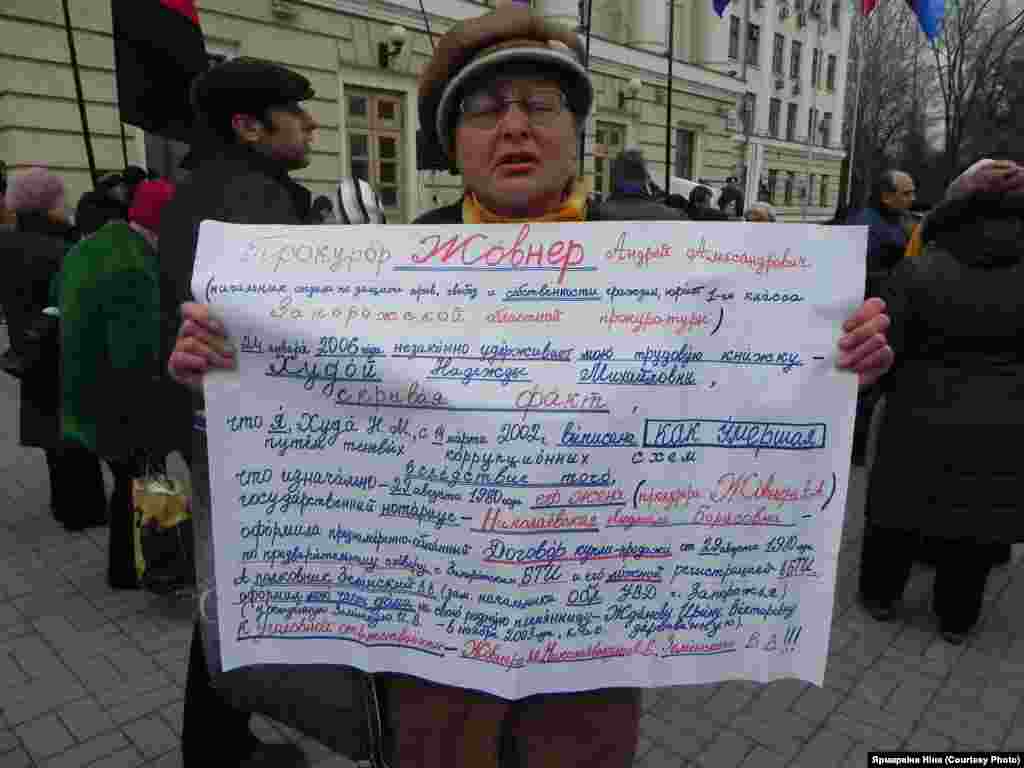 Прокурор Жовнер Андрей Александрович
(начальник отдела по защите прав, свобод и собственности граждан, юрист 1-го класса
Запорожской областной прокуратуры)
24 января 2006 года незаконно удерживает мою трудовую книжку –
Худой Надежды Михайловны,
скрывая факт,
что Я, Худа Н.М., с 19 марта 2002г. выписана как умершая
путём теневых коррупционных схем
вследствие того,
что изначально – 29 августа 1980 года его жена (прокурора Жовнера А.А)
государственный нотариус – Николаевская Людмила Борисовна –
оформила преднамеренно-обманный Договор купли-продажи от 29 августа 1980г.
по предварительному сговору с Запорожским БТИ и его ложной регистрацией в БТИ.
А полковник Земенский В.В (зам. начальника ОВД г. Запорожья)
оформил мою часть дома на свою родную племянницу – Жданову Викторовну
– в ноябре 2003 года,
К Уголовной ответственности – Жовнера Николаевскую Земенского В.В!!!
Ярмаркіна Ніна (Courtesy Photo)